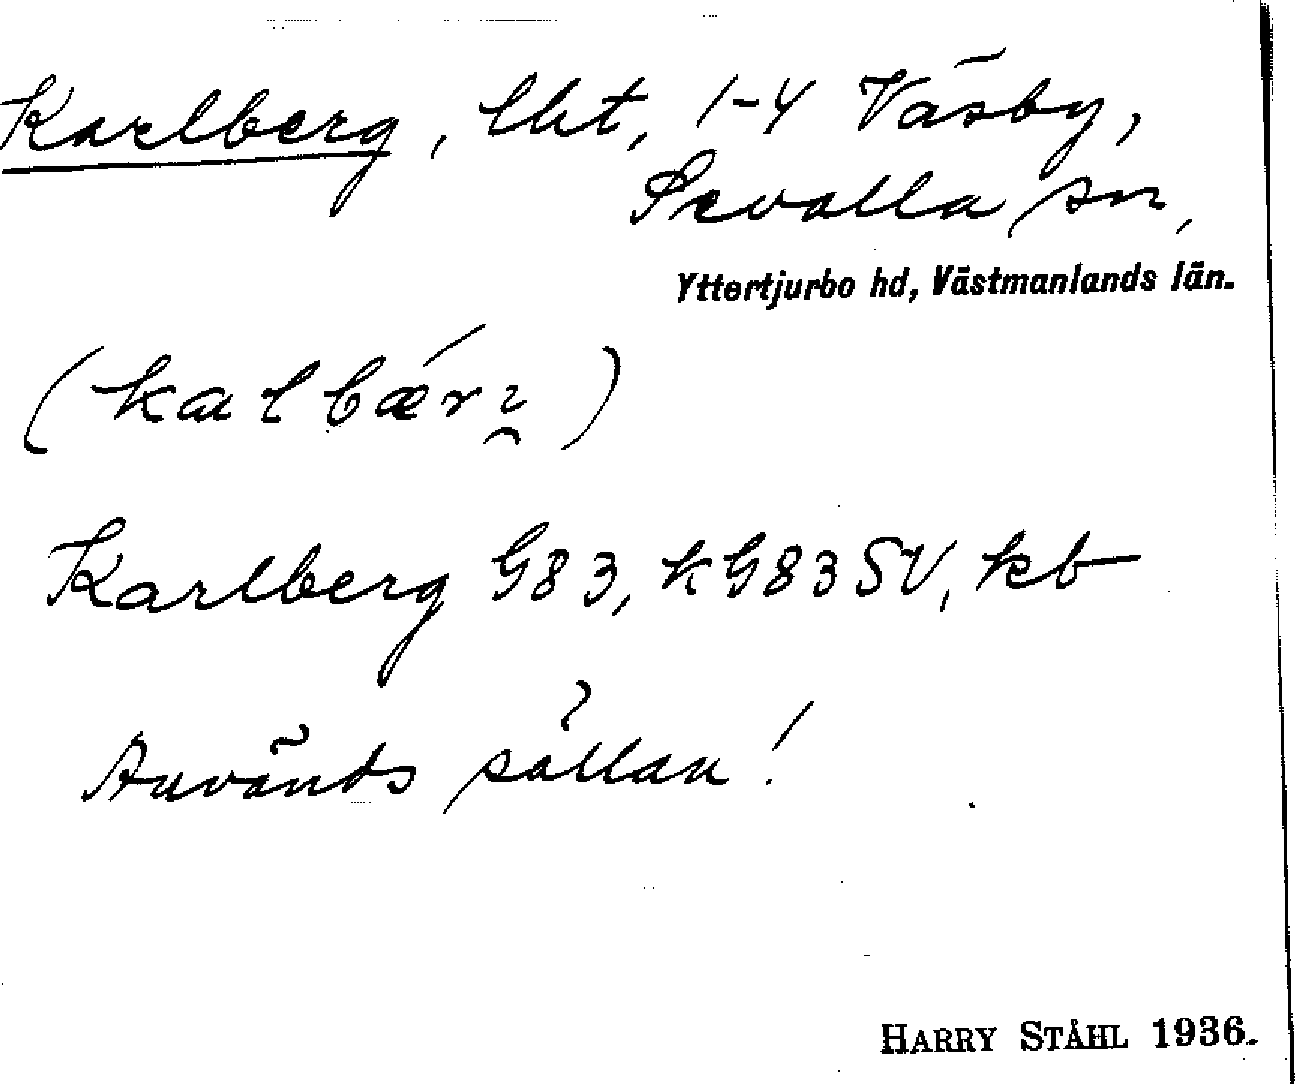 Karlberg, lht, 1-4 Väsby,
Sevalla sn,
Yttertjurbo hd, Västmanlands län.
Karlberg G83, kG83SV, kb
Används sällan!
HARRY STÅHL 1936.